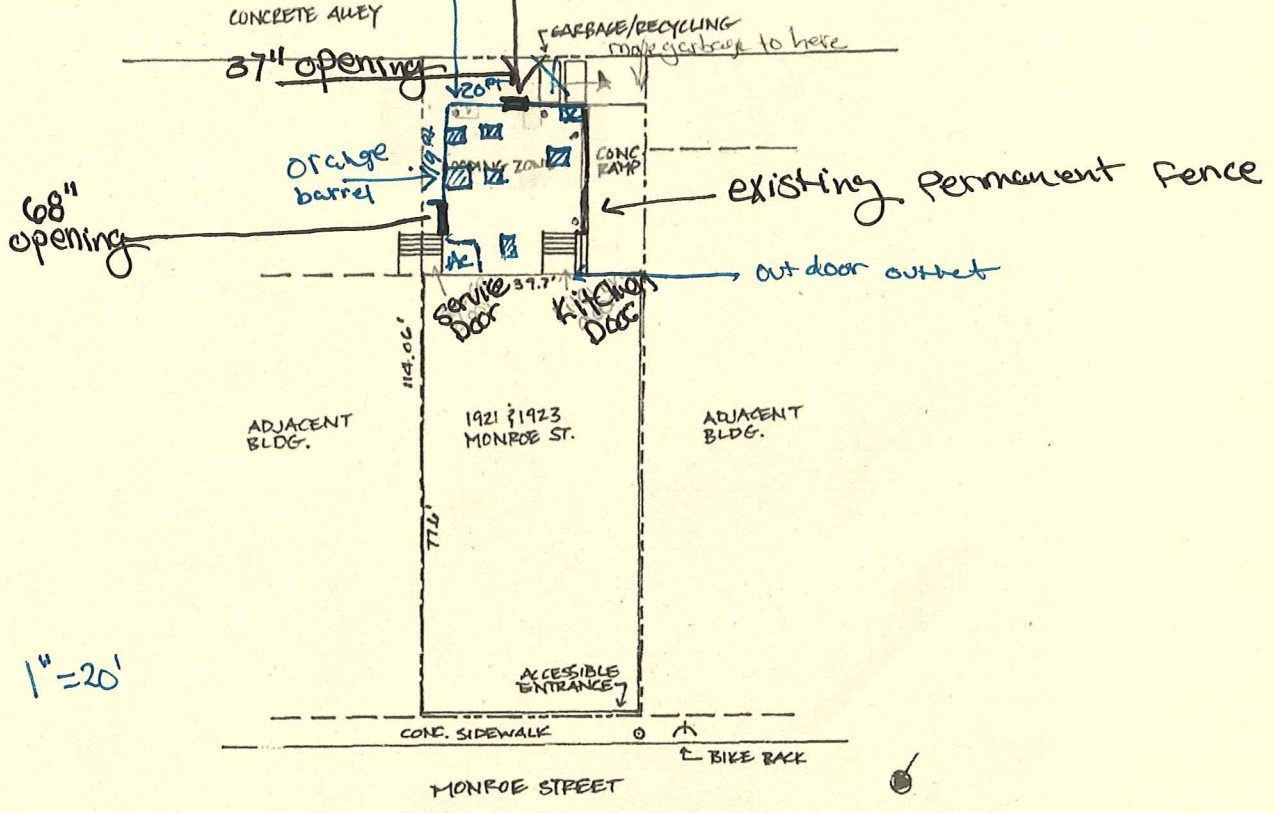 CONCRETE ALLEY
GARBAGE/RECYCLING
move garbage to here
37" opening
20ft
19 ft
orange
barrel
ZONE
CONC.
RAMP
existing permanent fence
68"
opening
AC
outdoor outlet
39.7'
Service
Door
Kitchen
Door
114.06'
ADJACENT
BLDG.
1921 & 1923
MONROE ST.
ADJACENT
BLDG.
77.6'
1"=20'
ACCESSIBLE
ENTRANCE
CONC. SIDEWALK
BIKE RACK
MONROE STREET